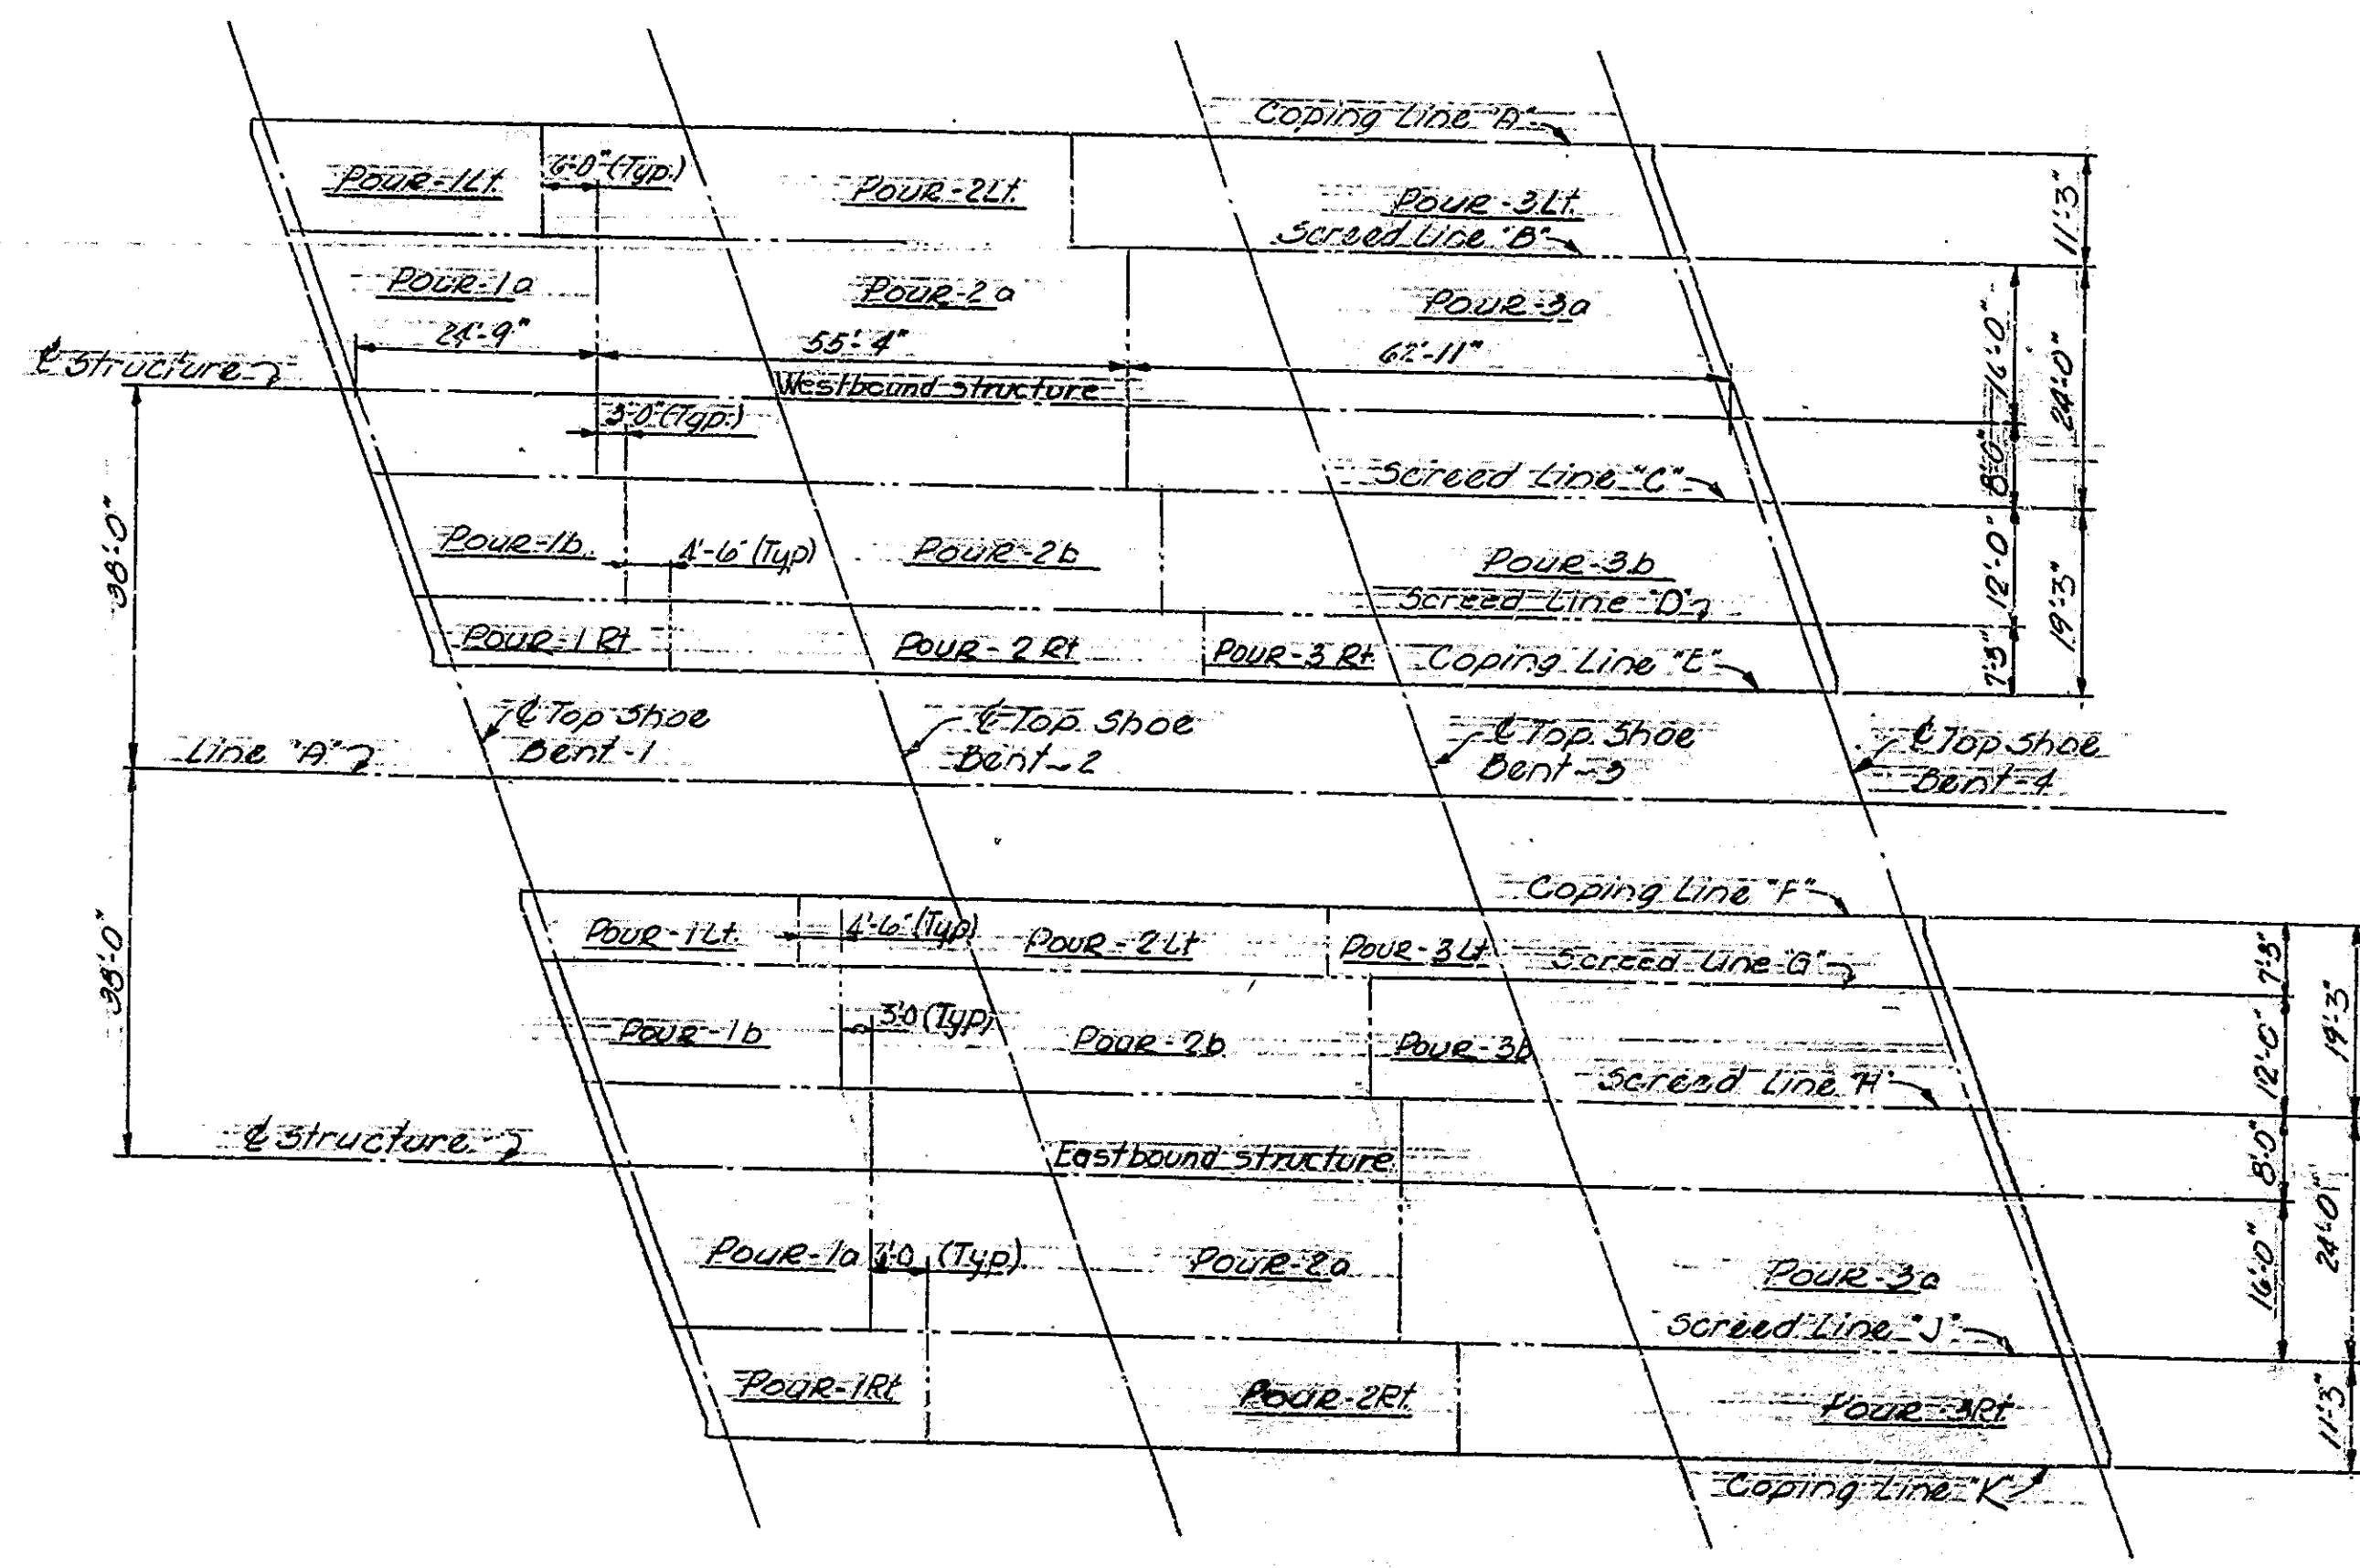 Coping Line "A"
Pour-1 Lt.
6'-0" (Typ.)
Pour-2 Lt.
Pour-3 Lt.
11'-3"
Screed Line "B"
Pour-1a
Pour-2a
Pour-3a
24'-9"
55'-4"
62'-11"
16'-0"
24'-0"
℄ Structure
Westbound structure
3'-0" (Typ.)
Screed Line "C"
8'-0"
38'-0"
Pour-1b
4'-6" (Typ)
Pour-2b
Pour-3b
12'-0"
19'-3"
Screed Line "D"
Pour-1 Rt
Pour-2 Rt
Pour-3 Rt.
Coping Line "E"
7'-3"
℄ Top Shoe
Bent-1
℄ Top Shoe
Bent-2
℄ Top Shoe
Bent-3
℄ Top Shoe
Bent-4
Line "A"
Coping Line "F"
Pour-1 Lt.
4'-6" (Typ)
Pour-2 Lt
Pour-3 Lt
Screed Line "G"
7'-3"
38'-0"
19'-3"
Pour-1b
3'-0 (Typ)
Pour-2b
Pour-3b
12'-0"
Screed Line "H"
℄ Structure
Eastbound structure
8'-0"
24'-0"
Pour-1a
(Typ)
Pour-2a
Pour-3a
16'-0"
Screed Line "J"
Pour-1Rt
Pour-2Rt.
Pour-3Rt.
11'-3"
Coping Line "K"